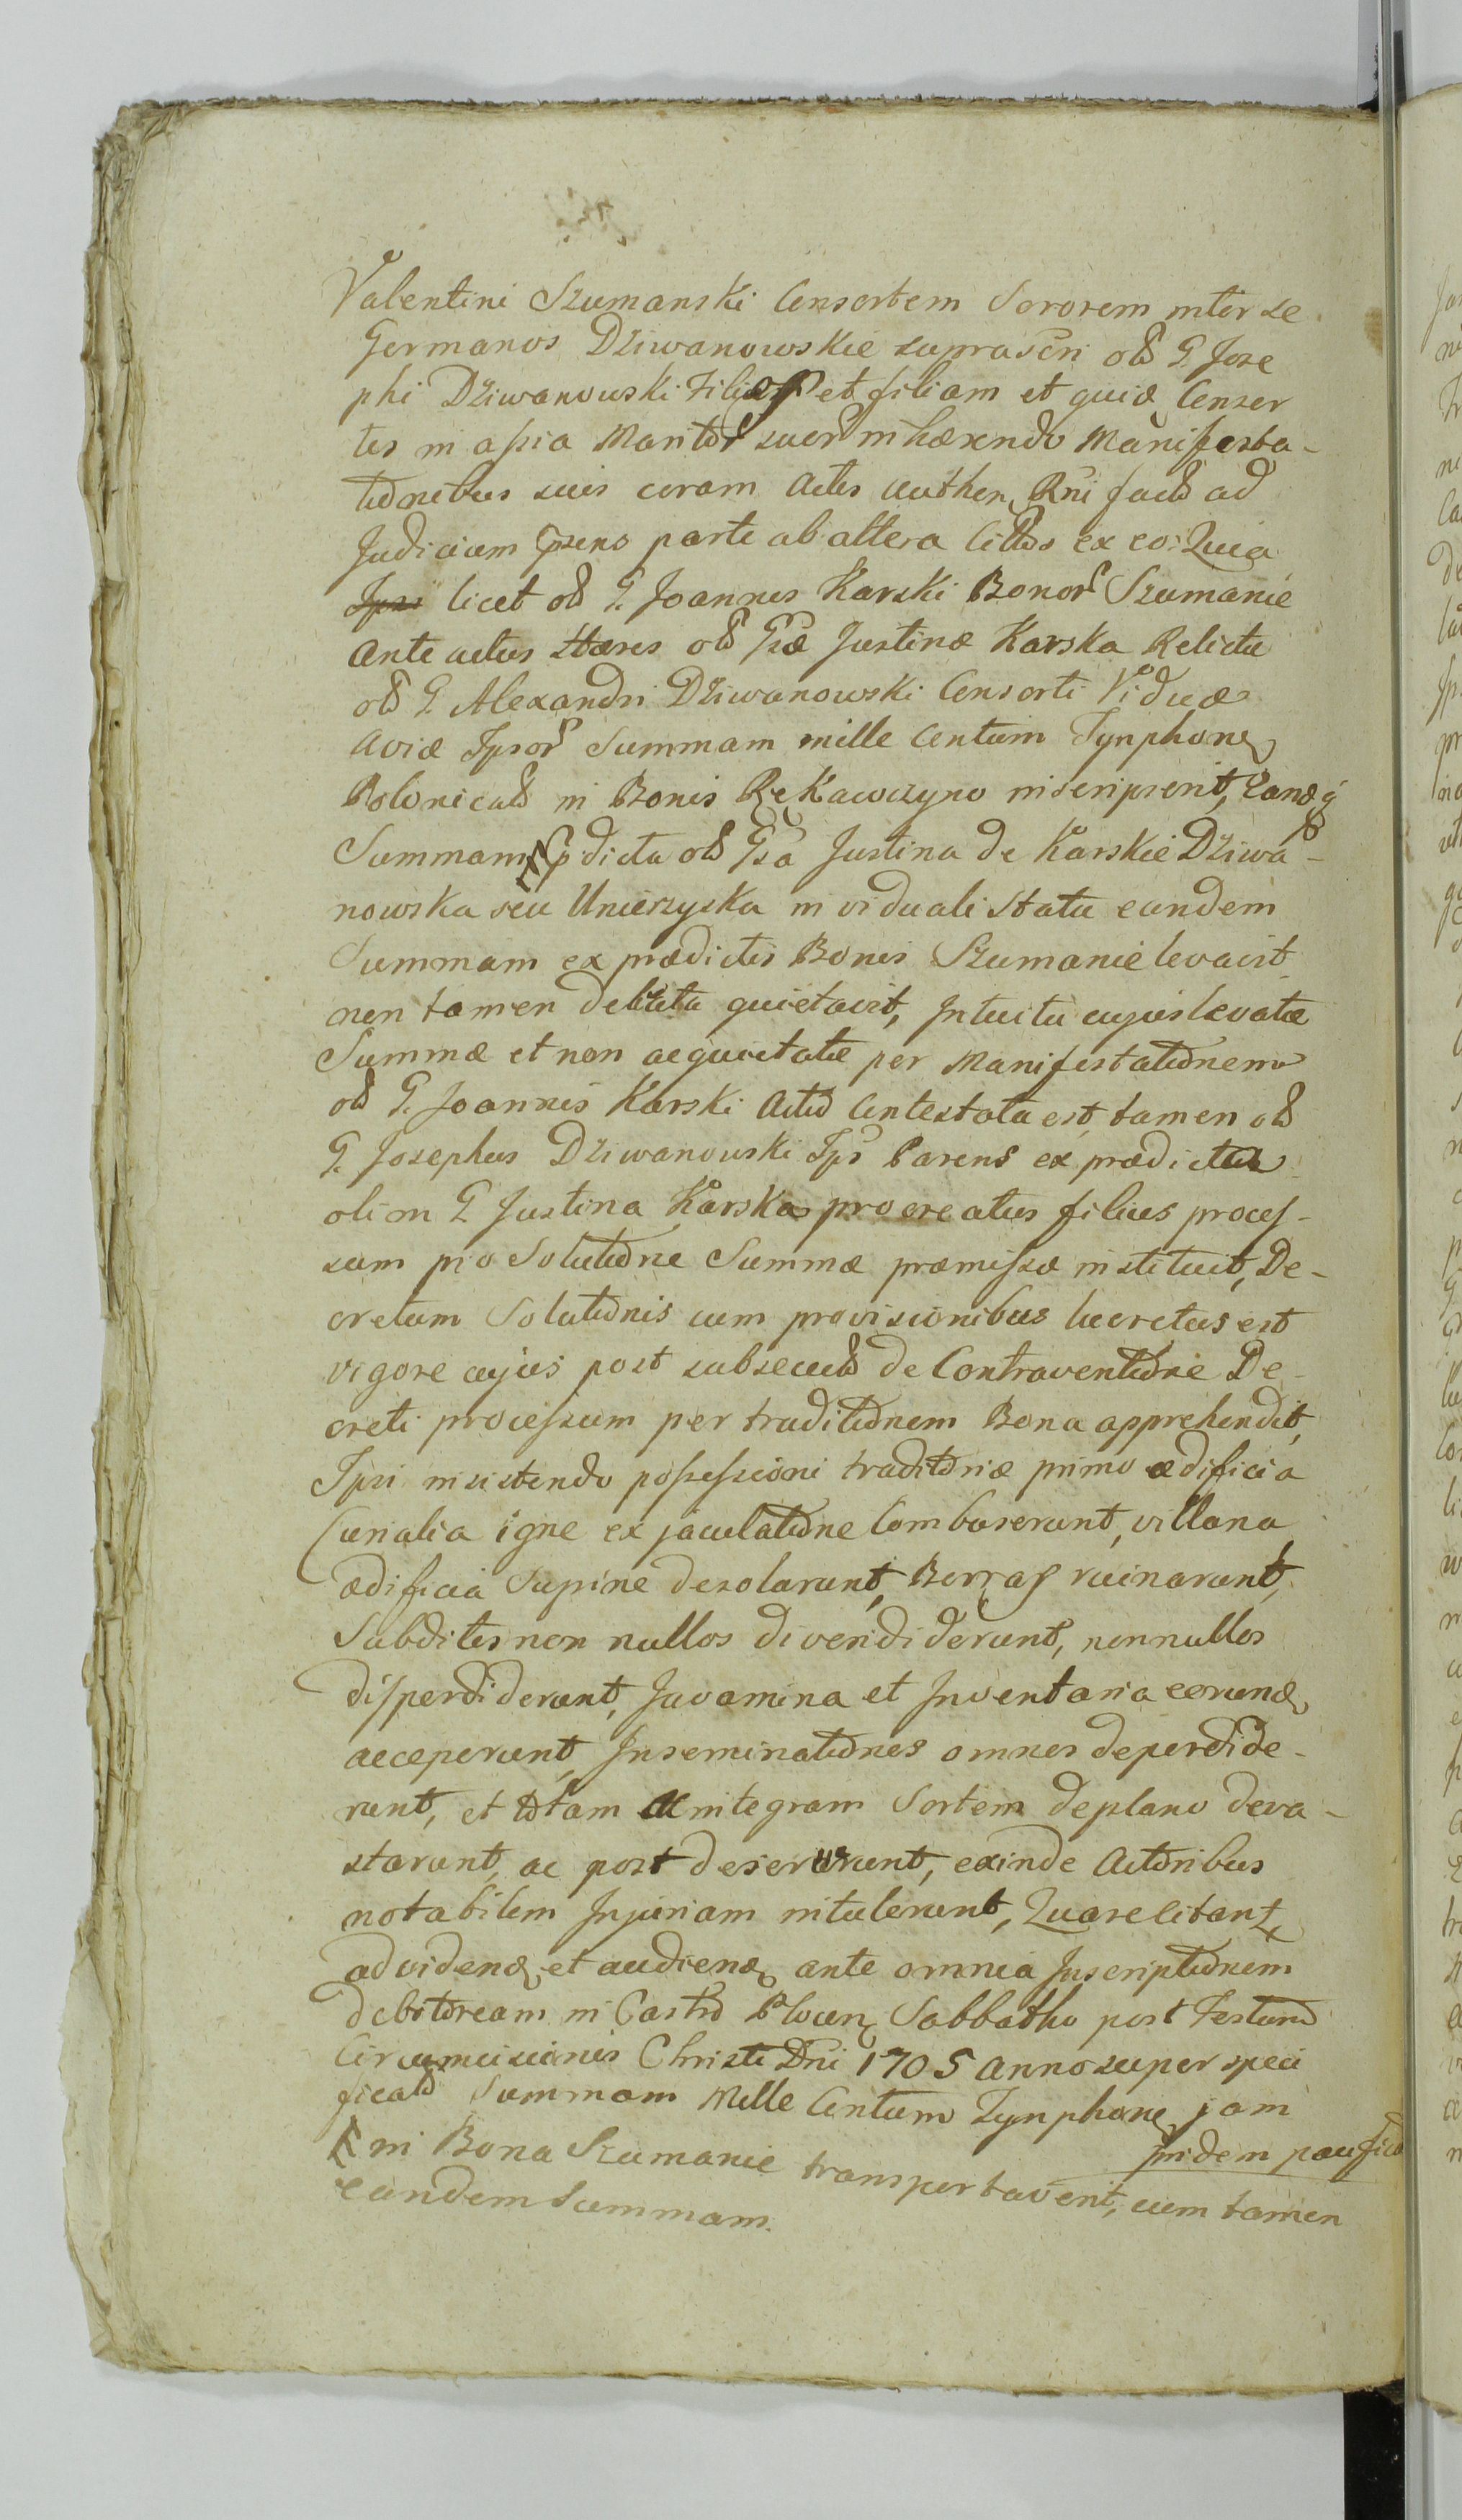 Valentini Szumanski Consortem Sororem inter se
Germanos Dziwanowskie suprascri olő G. Jose
phi Dziwanowski Filios et filiam et quid, Conser
tes in assia Maritor suor inhærendo Manifesta-
tionibus suis coram Actis Authen, Rni facts ad
Judicium Gpsens parte ab altera Cittos ex eo: Quia
licet olő G. Joannes Karski Bonor Szumanie
Ante actus Hæres olő Gsæ Justinæ Karska Relictæ
olő G. Alexandri Dziwanowski Consorti Viduæ
Aviæ Ipsor Summam mille Centum Tynphone,
Polonicalő in Bonis Rękawczyno inscripserit, Eandę q́
Summam pdicta olő Gsa Justina de Karskie Dziwa-
nowska seu Unierzyska in viduali Statu eandem
Summam ex prædictis Bonis Szumanie levavit
non tamen debite quietavit, Intuitu cujus levatæ
Summæ et non acquietatæ per Manifestationem
olő G. Joannis Karski Actio Contestata est, tamen olő
G. Josephus Dziwanowski Ips Parens ex prædicta
olim G Justina Karska procreatus filius proces-
sum pro Solutione Summæ præmissæ instituit, De-
cretum Solutionis cum provisionibus lucratus est
vigore cujus post subsecutő de Contraventione De-
creti processum per traditionem Bona apprehendit,
Ipsi insistendo possessioni traditoriæ primo ædificia
Curialia igne ex jaculatione Combuserunt, villana
ædificia Supine desolarunt, Borras ruinarunt,
Subditos non nullos divendiderunt, nonnullos
disperdiderunt, Juvamina et Inventaria eorund,
acceperunt, Inseminationes omnes deperdide-
runt, et totam integram Sortem deplano deva-
starunt, ac post deseruerunt, exinde Actoribus
notabilem Injuriam intulerunt, Quare Citant,
ad vidend, et audiend, ante omnia Inscriptionem
debitoream in Castro Plocen, Sabbatho post Festum
Circumcisionis Christi Dni 1705 Anno super speci
ficatő Summam Mille Centum Tynphone, jam
pridem
in Bona Szumanie transportaverit, cum tamen
eandem Summam.